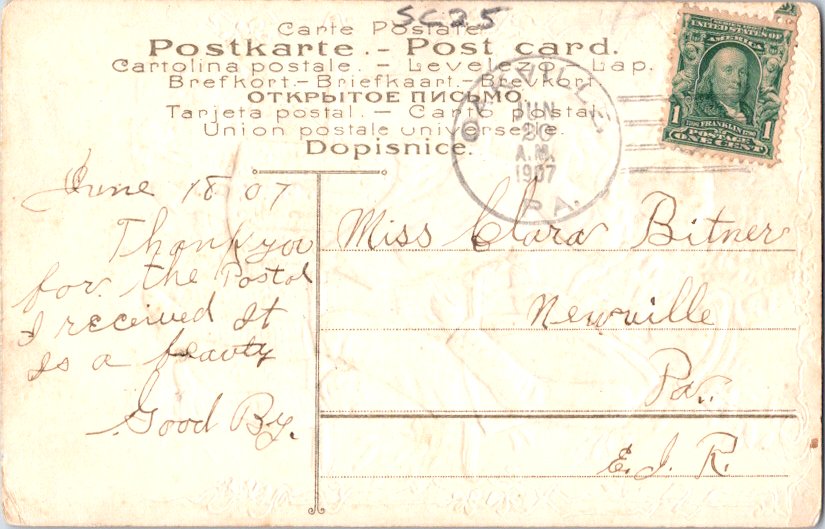 SC25
Carte Postale.
Postkarte. - Post card.
Cartolina postale. - Levelező - Lap.
Brefkort. - Briefkaart. - Brevkort
ОТКРЫТОЕ ПИСЬМО
Tarjeta postal. - Carto postal
Union postale universelle.
Dopisnice.
JUN
20
A.M.
1907
PA.
UNITED STATES OF AMERICA
1 FRANKLIN 1
POSTAGE
ONE CENT
June 18 07
Thank you
for the Postal
I received It
Is a beauty
Good By.
Miss Clara Bitner
Newville
Pa.
E. J. R.